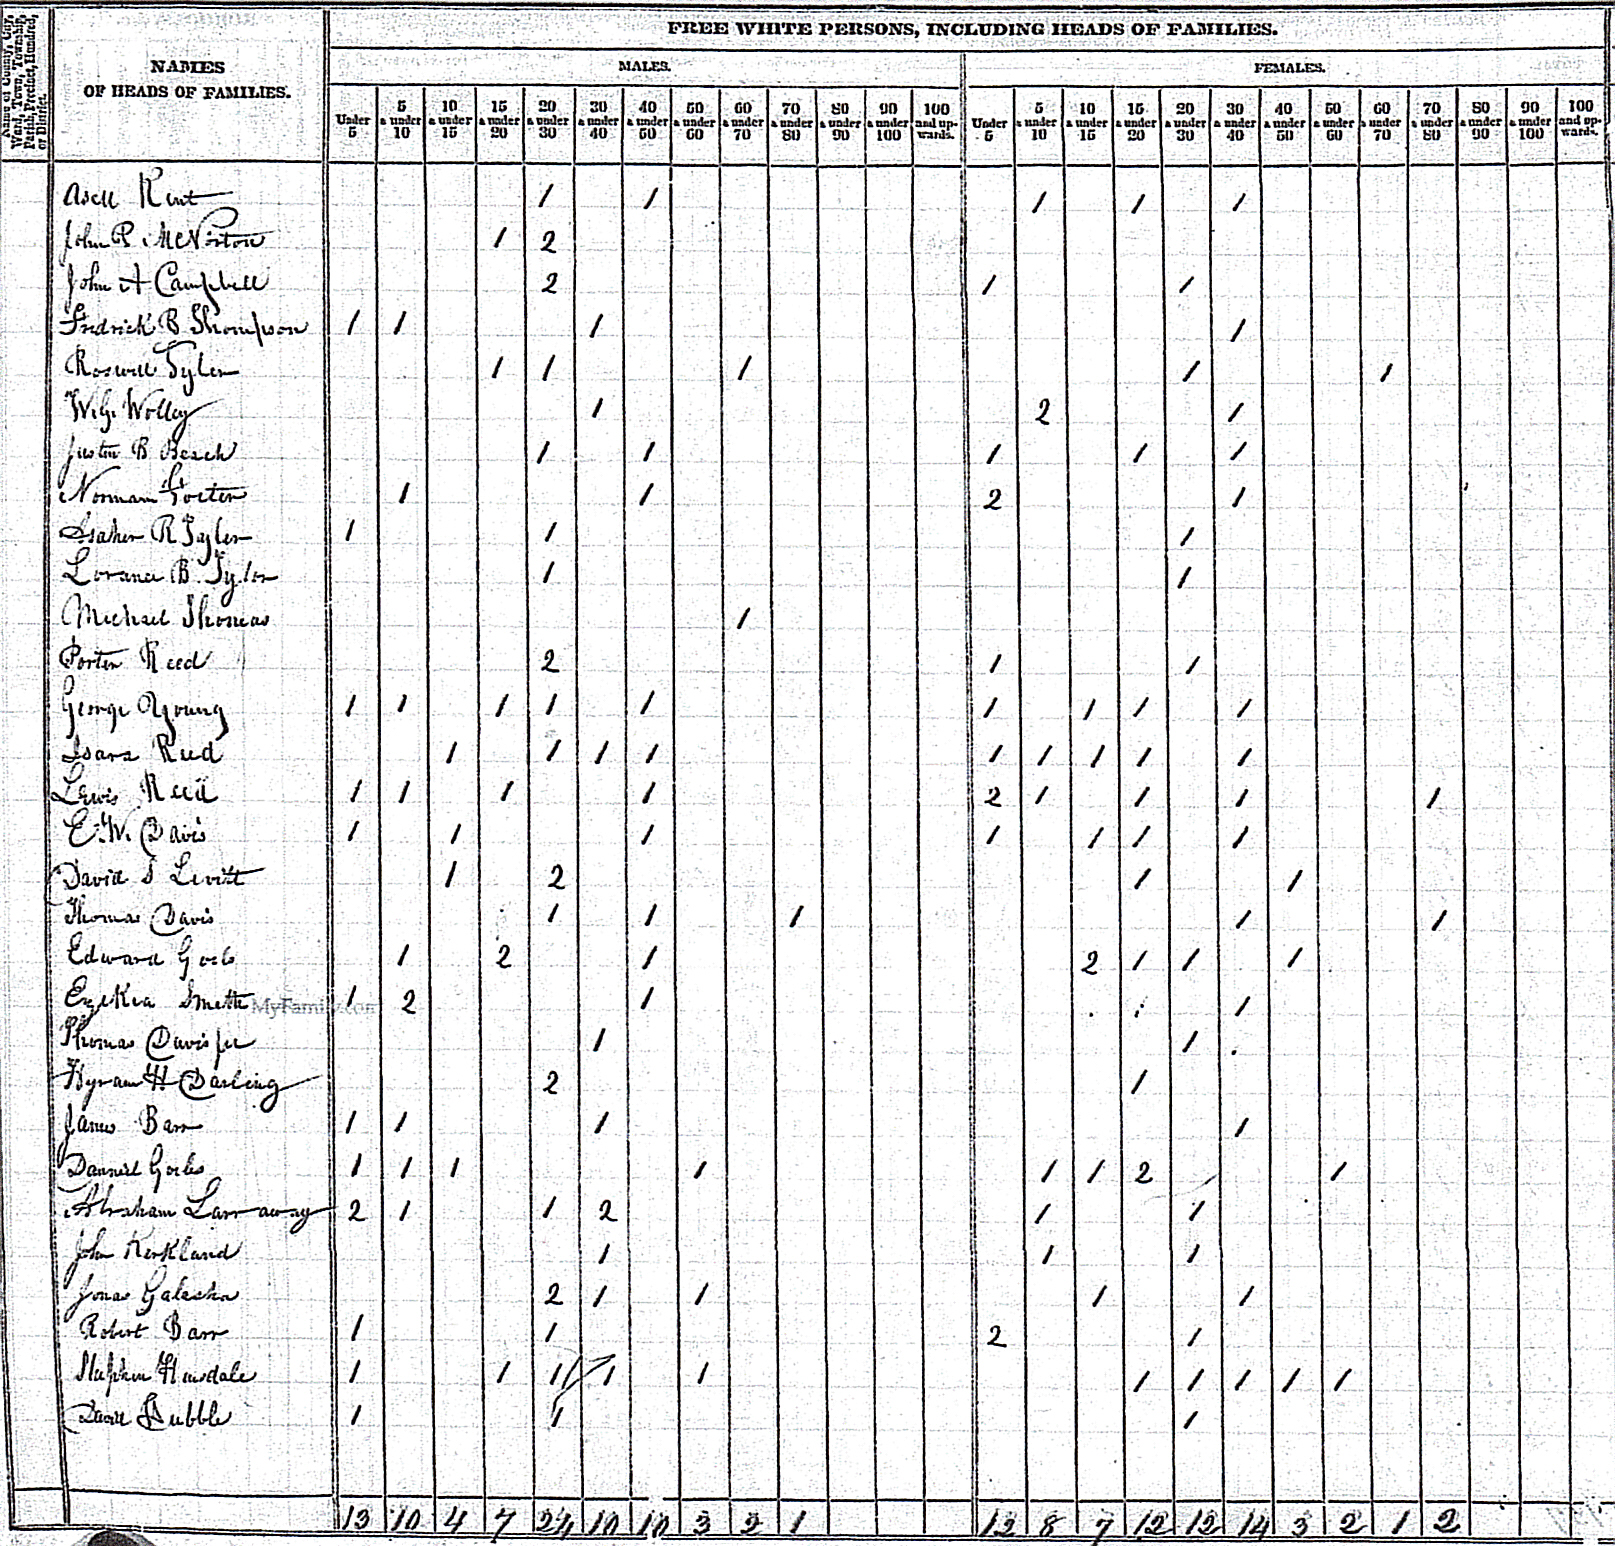 Name of County, City, Ward, Town, Township, Parish, Precinct, Hundred, or District.
NAMES OF HEADS OF FAMILIES.
FREE WHITE PERSONS, INCLUDING HEADS OF FAMILIES.
MALES. FEMALES.
Under 5 5 & under 10 10 & under 15 15 & under 20 20 & under 30 30 & under 40 40 & under 50 50 & under 60 60 & under 70 70 & under 80 80 & under 90 90 & under 100 100 and upwards. Under 5 5 & under 10 10 & under 15 15 & under 20 20 & under 30 30 & under 40 40 & under 50 50 & under 60 60 & under 70 70 & under 80 80 & under 90 90 & under 100 100 and upwards.
Kent 1 1 1 1 1
John McNorton 1 2
John A Campbell 2 1 1
Fredrick B Thompson 1 1 1 1
Roswell Tyler 1 1 1 1 1
Wolley 1 2 1
Justin B Beach 1 1 1 1 1
Norman 1 1 2 1
R Tyler 1 1 1
B. Tyler 1 1
Michael Thomas 1
Porter Reed 2 1 1
George Young 1 1 1 1 1 1 1 1 1
Reed 1 1 1 1 1 1 1 1 1
Lewis Reed 1 1 1 1 2 1 1 1 1
E. W. Davis 1 1 1 1 1 1 1
David S Levitt 1 2 1 1
Thomas Davis 1 1 1 1 1
Edward 1 2 1 2 1 1 1
MyFamily.com 1 2 1 1
Thomas Davis jr 1 1
Hyram H Darling 2 1
James Barr 1 1 1 1
Daniel 1 1 1 1 1 1 2 1
Abraham Larraway 2 1 1 2 1 1
John Kirkland 1 1 1
Jonas Galusha 2 1 1 1 1
Robert Barr 1 1 2 1
Stephen Hinsdale 1 1 1 1 1 1 1 1 1
Hubble 1 1 1
13 10 4 7 24 10 10 3 2 1 12 8 7 12 12 14 3 2 1 2